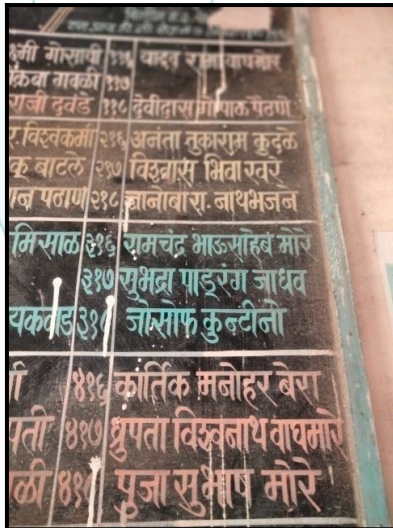 क्ष्मी गोसावी ११६ यादव रामा वाघमारे
किबा गावळी ११७
राजी दवंडे ११८ देवीदास गोपाळ पैठणे
र. विश्वकर्मा २१६ अनंता तुकाराम कुदळे
कू बाटले २१७ विश्वास भिवा खरे
पठाण २१८ ज्ञानोबा रा. नाथभजन
मिसाळ ३१६ रामचंद्र भाऊसाहेब मोरे
३१७ सुभद्रा पाडुरंग जाधव
यकवाड ३१८ जोसोफ कुन्टीनो
४१६ कार्तिक मनोहर बेरा
पती ४१७ श्रुपता विश्वनाथ वाघमारे
ळी ४१८ पूजा सुभाष मोरे